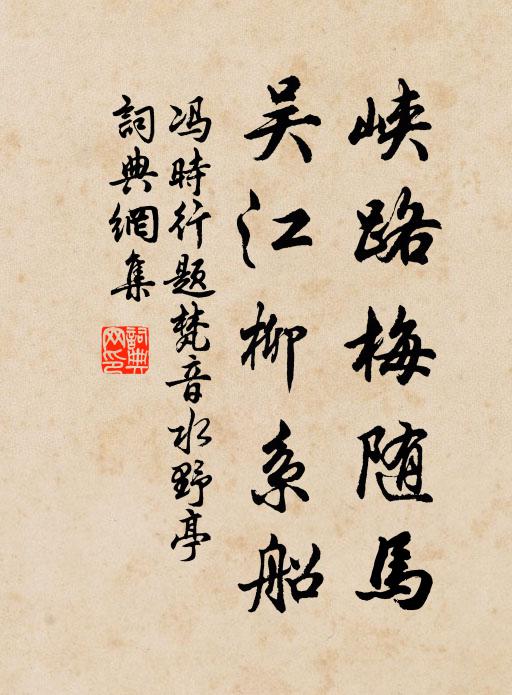 峡路梅随馬
吴江柳系船
冯時行题梵音水野亭
詞典網集
詞典网印